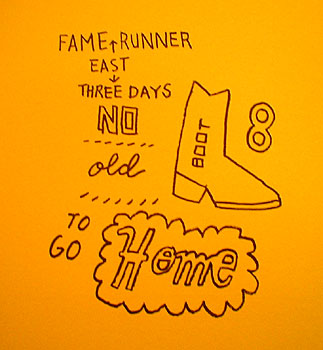 FAME↑RUNNER
EAST
↓
THREE DAYS
NO
old
BOOT
8
TO
GO
Home